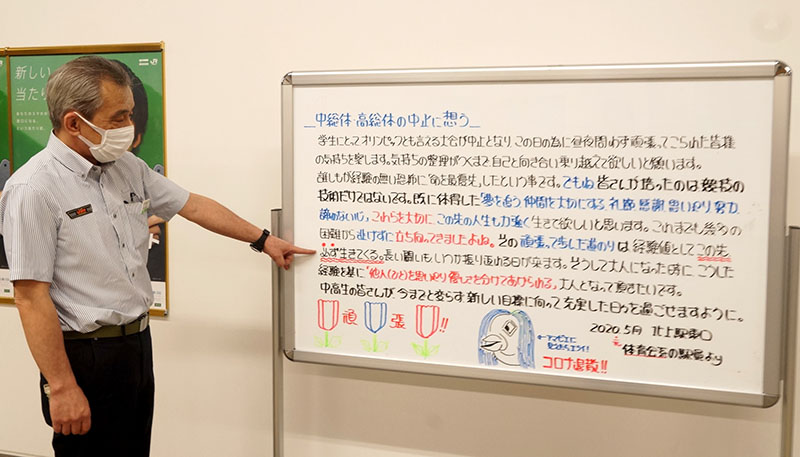 新しい
当たり
JR
中総体・高総体の中止に想う
学生にとってオリンピックとも言える大会が中止となり、この日の為に昼夜問わず頑張ってこられた皆様
の気持ちを察します。気持ちの整理がつくまで自己と向き合い乗り越えて欲しいと願います。
誰しもが経験の無い恐怖に「命を最優先」したという事です。でもね皆さんが培ったのは競技の
技術だけではないです。既に体得した「夢を追う 仲間を大切にする 礼節 感謝 思いやり 努力
諦めない心」これらを大切に、この先の人生も力強く生きて欲しいと思います。これまでも幾多の
困難から逃げずに立ち向ってきましたよね。その頑張って歩んだ道のりは経験値としてこの先、
必ず生きてくる。長い闘いもいつか振り返れる日が来ます。そうして大人になった時に、こうした
経験を基に「他人(ひと)を思いやり優しさを分けてあげられる」大人となって頂きたいです。
中高生の皆さんが、今までと変らず新しい目標に向って充実した日々を過ごせますように。
頑張!!
2020.5月 北上駅東口
元体育会系の駅員より
コロナ退散!!